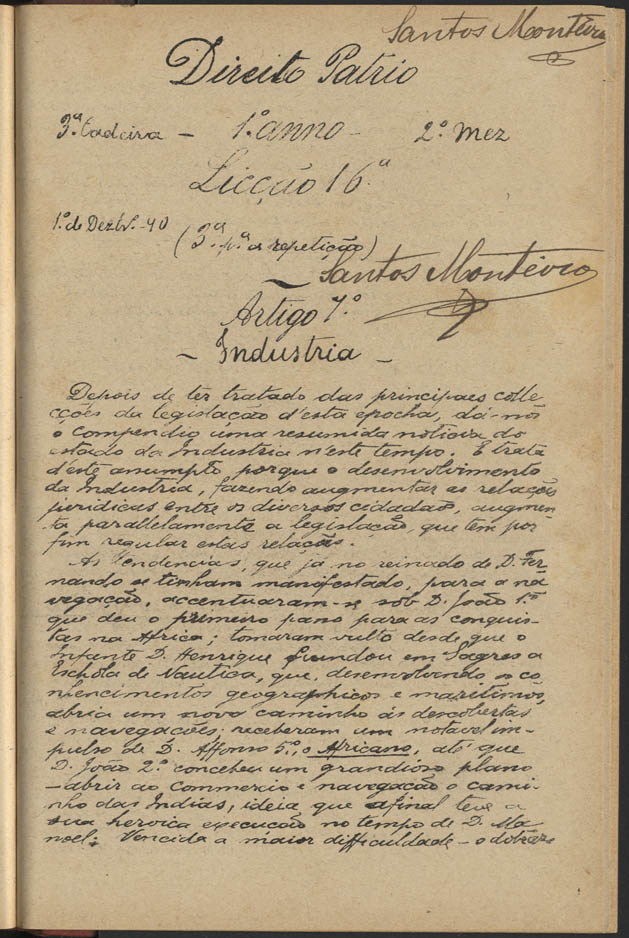 Santos Monteiro
Direito Patrio
3ª Cadeira - 1º anno - 2º Mez
Licção 16ª
1º de Dezbrº-90
(3ª pª a repetição)
Santos Monteiro
Artigo 7º
- Industria -
Depois de ter tratado das principaes colle-
cções da legislação d'esta epocha, dá-nos
o compendio uma resumida noticia do
estado da Industria n'este tempo. E trata
d'este assumpto porque o desenvolvimento
da Industria, fazendo augmentar as relações
juridicas entre os diversos cidadãos, augmen-
ta parallelamente a legislação, que tem por
fim regular estas relações.
As tendencias, que já no reinado de D. Fer-
nando se tinham manifestado, para a na-
vegação, accentuaram-se sob D. João 1.º
que deu o primeiro passo para as conquis-
tas na Africa; tomaram vulto desde que o
Infante D. Henrique fundou em Sagres a
Eschola de Nautica, que, desenvolvendo os co-
nhencimentos geographicos e maritimos,
abria um novo caminho ás descobertas
e navegações; receberam um notavel im-
pulso de D. Affonso 5º, o Africano, até que
D. João 2º concebeu um grandioso plano
- abrir ao commercio e navegação o cami-
nho das Indias, ideia que afinal teve a
sua heroica execução no tempo de D. Ma-
noel. Vencida a maior difficuldade - o dobrar